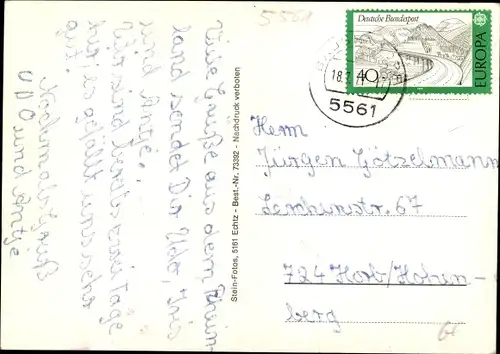 5561
Viele Grüße aus dem Rhein-
land sendet Dir Udo, Iris
und Antje.
Wir sind bereits zwei Tage
hier, es gefällt uns sehr
gut.
Nochmals Gruß
UDO und Antje
Stein-Fotos, 5161 Echtz - Best.-Nr. 73392 - Nachdruck verboten
Deutsche Bundespost
EUROPA
40
18.7.
5561
Herrn
Jürgen Götzelmann
67
724 Horb/Hohen-
berg